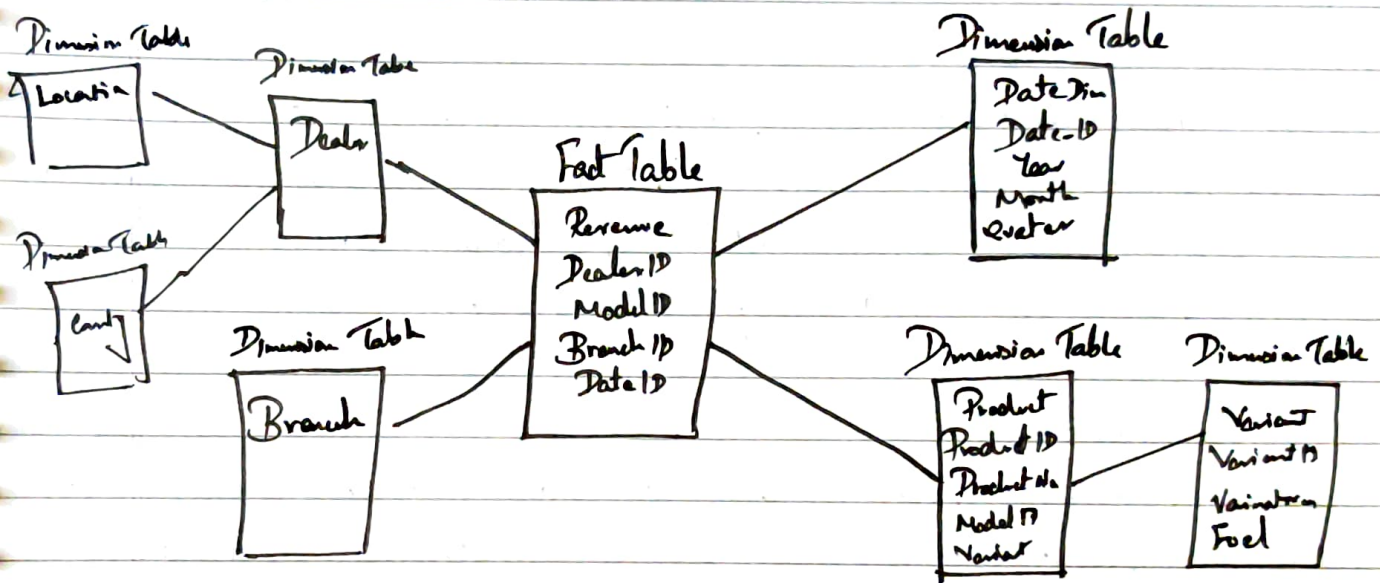 Dimension Table
Location
Dimension Table
Dealer
Dimension Table
Dimension Table
Branch
Fact Table
Revenue
Dealer ID
Model ID
Branch ID
Date ID
Dimension Table
Date Dim
Date-ID
Year
Month
Dimension Table
Product
Product ID
Product Na
Model ID
Variant
Dimension Table
Variant
Variant ID
Fuel